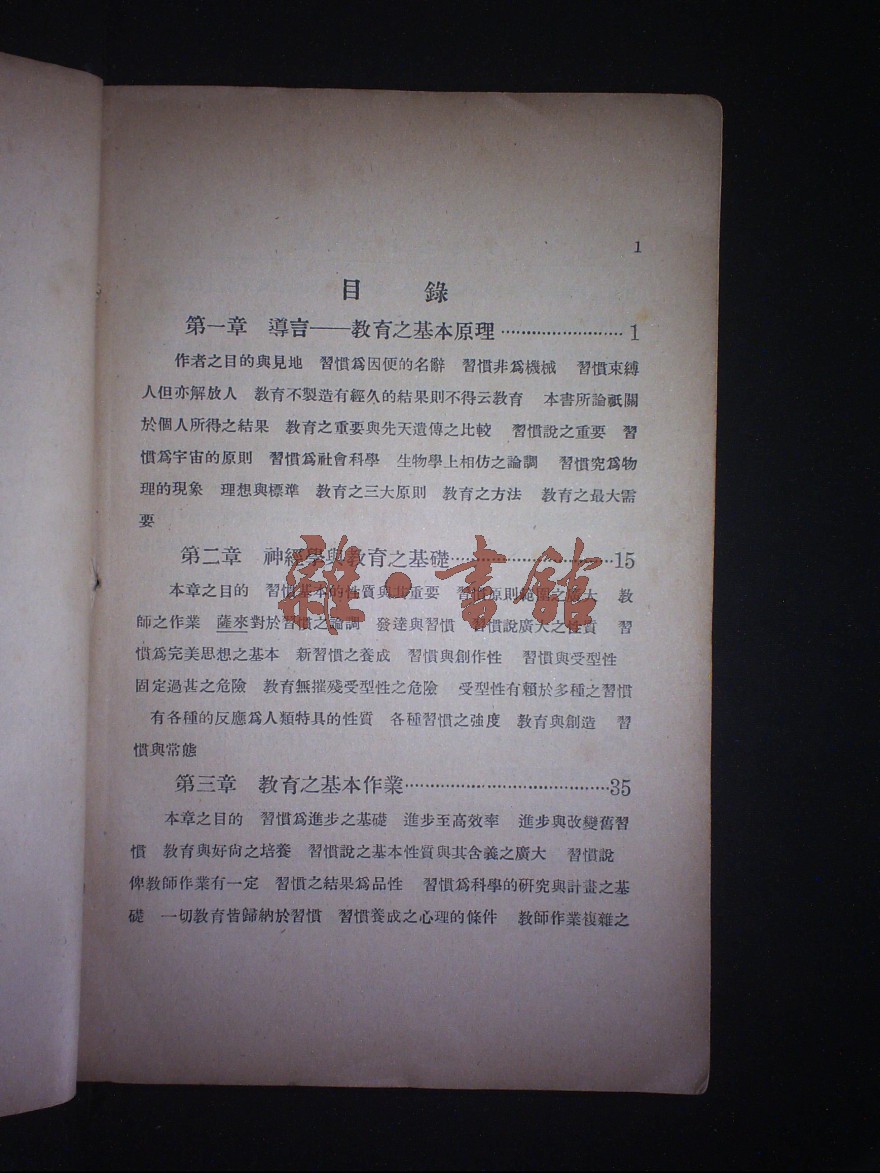 1
目 錄
第一章 導言——教育之基本原理························1
作者之目的與見地 習慣爲因便的名辭 習慣非爲機械 習慣束縛
人但亦解放人 教育不製造有經久的結果則不得云教育 本書所論祇關
於個人所得之結果 教育之重要與先天遺傳之比較 習慣說之重要 習
慣爲宇宙的原則 習慣爲社會科學 生物學上相仿之論調 習慣究爲物
理的現象 理想與標準 教育之三大原則 教育之方法 教育之最大需
要
第二章 神經學與教育之基礎································15
本章之目的 習慣基本的性質與其重要 習慣原則範圍之廣大 教
師之作業 薩來對於習慣之論調 發達與習慣 習慣說廣大之性質 習
慣爲完美思想之基本 新習慣之養成 習慣與創作性 習慣與受型性
固定過甚之危險 教育無摧殘受型性之危險 受型性有賴於多種之習慣
有各種的反應爲人類特具的性質 各種習慣之強度 教育與創造 習
慣與常態
第三章 教育之基本作業········································35
本章之目的 習慣爲進步之基礎 進步至高效率 進步與改變舊習
慣 教育與好向之培養 習慣說之基本性質與其含義之廣大 習慣說
俾教師作業有一定 習慣之結果爲品性 習慣爲科學的研究與計畫之基
礎 一切教育皆歸納於習慣 習慣養成之心理的條件 教師作業複雜之
雜·書館